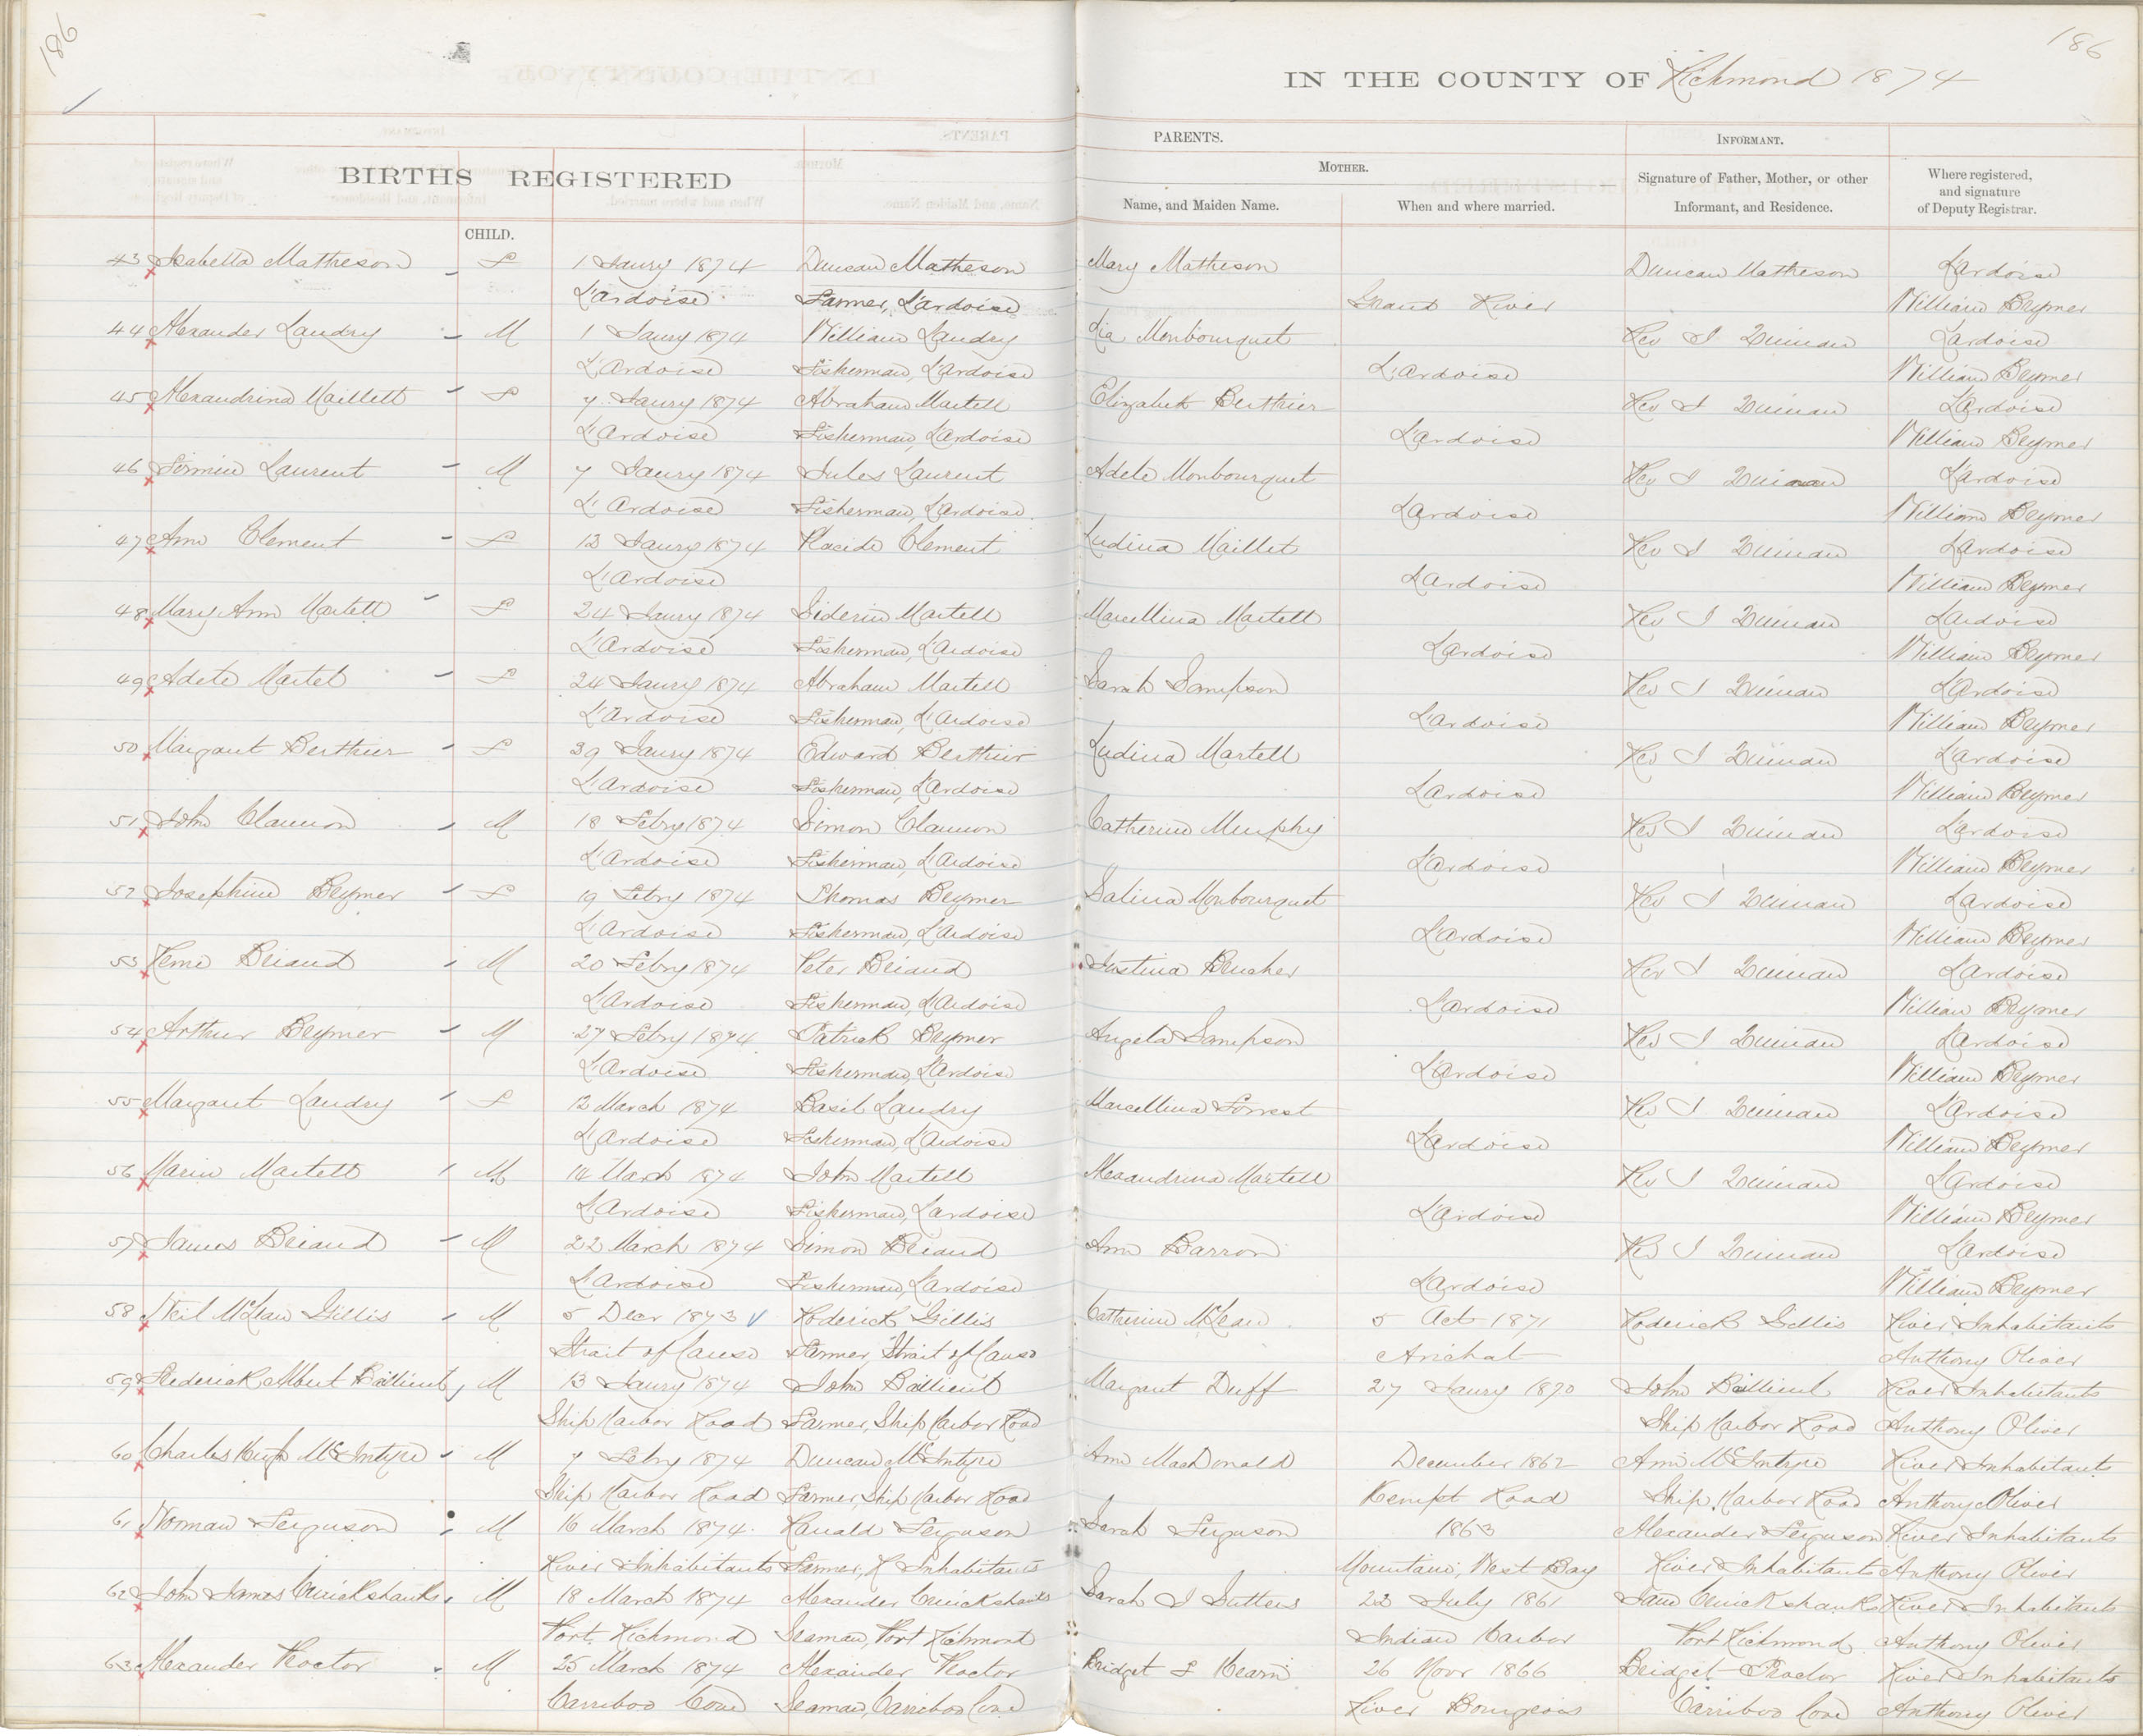 186
186
IN THE COUNTY OF Richmond 1874
PARENTS.
INFORMANT.
BIRTHS REGISTERED
MOTHER.
Signature of Father, Mother, or other
Informant, and Residence.
Where registered,
and signature
of Deputy Registrar.
Name, and Maiden Name.
When and where married.
CHILD.
43 Isabella Matheson F 1 Jaury 1874 Duncan Matheson Mary Matheson Duncan Matheson L'ardoise
L'ardoise Farmer, L'ardoise Grand River William Beymer
44 Alexander Landry M 1 Jaury 1874 William Landry Lia Monbourquet Rev J Quinan L'ardoise
L'Ardoise Fisherman, L'Ardoise L'Ardoise William Beymer
45 Alexandrina Maillett F 7 Jaury 1874 Abraham Martell Elizabeth Berthier Rev J Quinan L'Ardoise
L'Ardoise Fisherman, L'Ardoise L'Ardoise William Beymer
46 Firmin Laurent M 7 Jaury 1874 Jules Laurent Adele Monbourquet Rev J Quinan L'Ardoise
L'Ardoise Fisherman, L'Ardoise L'Ardoise William Beymer
47 Ann Clement F 13 Jaury 1874 Placide Clement Ludina Maillet Rev J Quinan L'Ardoise
L'Ardoise L'Ardoise William Beymer
48 Mary Ann Martell F 24 Jaury 1874 Siderin Martell Marcellina Martell Rev J Quinan L'Ardoise
L'Ardoise Fisherman, L'Ardoise L'Ardoise William Beymer
49 Adele Martel F 24 Jaury 1874 Abraham Martell Sarah Sampson Rev J Quinan L'Ardoise
L'Ardoise Fisherman, L'Ardoise L'Ardoise William Beymer
50 Margaret Berthier F 39 Jaury 1874 Edward Berthier Ludina Martell Rev J Quinan L'Ardoise
L'Ardoise Fisherman, L'Ardoise L'Ardoise William Beymer
51 John Clannon M 18 Febry 1874 Simon Clannon Catherine Murphy Rev J Quinan L'Ardoise
L'Ardoise Fisherman, L'Ardoise L'Ardoise William Beymer
52 Josephine Beymer F 19 Febry 1874 Thomas Beymer Salina Monbourquet Rev J Quinan L'Ardoise
L'Ardoise Fisherman, L'Ardoise L'Ardoise William Beymer
53 Remi Briand M 20 Febry 1874 Peter Briand Justina Brucher Rev J Quinan L'Ardoise
L'Ardoise Fisherman, L'Ardoise L'Ardoise William Beymer
54 Arthur Beymer M 27 Febry 1874 Patrick Beymer Angela Sampson Rev J Quinan L'Ardoise
L'Ardoise Fisherman, L'Ardoise L'Ardoise William Beymer
55 Margaret Landry F 12 March 1874 Basil Landry Marcellina Forrest Rev J Quinan L'Ardoise
L'Ardoise Fisherman, L'Ardoise L'Ardoise William Beymer
56 Marin Martell M 14 March 1874 John Martell Alexandrina Martell Rev J Quinan L'Ardoise
L'Ardoise Fisherman, L'ardoise L'Ardoise William Beymer
57 James Briand M 22 March 1874 Simon Briand Ann Barron Rev J Quinan L'Ardoise
L'Ardoise Fisherman, L'Ardoise L'Ardoise William Beymer
58 Neil McLean Gillis M 5 Decr 1873 Roderick Gillis Catherine McLean 5 Oct 1871 Roderick Gillis River Inhabitants
Strait of Canso Farmer, Strait of Canso Arichat Anthony Oliver
59 Frederick Albert Baillieul M 13 Jaury 1874 John Baillieul Margaret Duff 27 Jaury 1870 John Baillieul River Inhabitants
Ship Harbor Road Farmer, Ship Harbor Road Ship Harbor Road Anthony Oliver
60 Charles Hugh McIntyre M 7 Febry 1874 Duncan McIntyre Ann MacDonald December 1862 Ann McIntyre River Inhabitants
Ship Harbor Road Farmer, Ship Harbor Road Kempt Road Ship Harbor Road Anthony Oliver
61 Norman Ferguson M 16 March 1874 Ranald Ferguson Sarah Ferguson 1863 Alexander Ferguson River Inhabitants
River Inhabitants Farmer, R Inhabitants Mountain, West Bay River Inhabitants Anthony Oliver
62 John James Cruickshanks M 18 March 1874 Alexander Cruickshanks Sarah J Suttens 22 July 1861 Jane Cruickshanks River Inhabitants
Port Richmond Seaman, Port Richmond Indian Harbor Port Richmond Anthony Oliver
63 Alexander Proctor M 25 March 1874 Alexander Proctor Bridget F Hearn 26 Novr 1866 Bridget Proctor River Inhabitants
Carriboo Cove Seaman, Carriboo Cove River Bourgeois Carriboo Cove Anthony Oliver